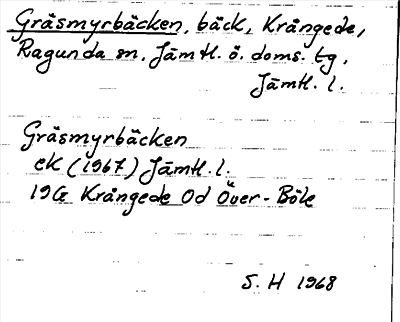 Gräsmyrbäcken, bäck, Krångede,
Ragunda sn, Jämtl. ö. doms. tg,
Jämtl. l.
Gräsmyrbäcken
ek (1967) Jämtl. l.
19G Krångede 0d Över-Böle
S. H 1968